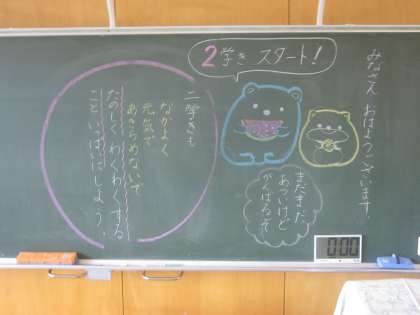 みなさん おはようございます。
2学き スタート!
まだまだ、
あついけど
がんばるぞ
二学きも
なかよく
元気で
あきらめないで
たのしくわくわくする
こといっぱいにしよう。
0:00